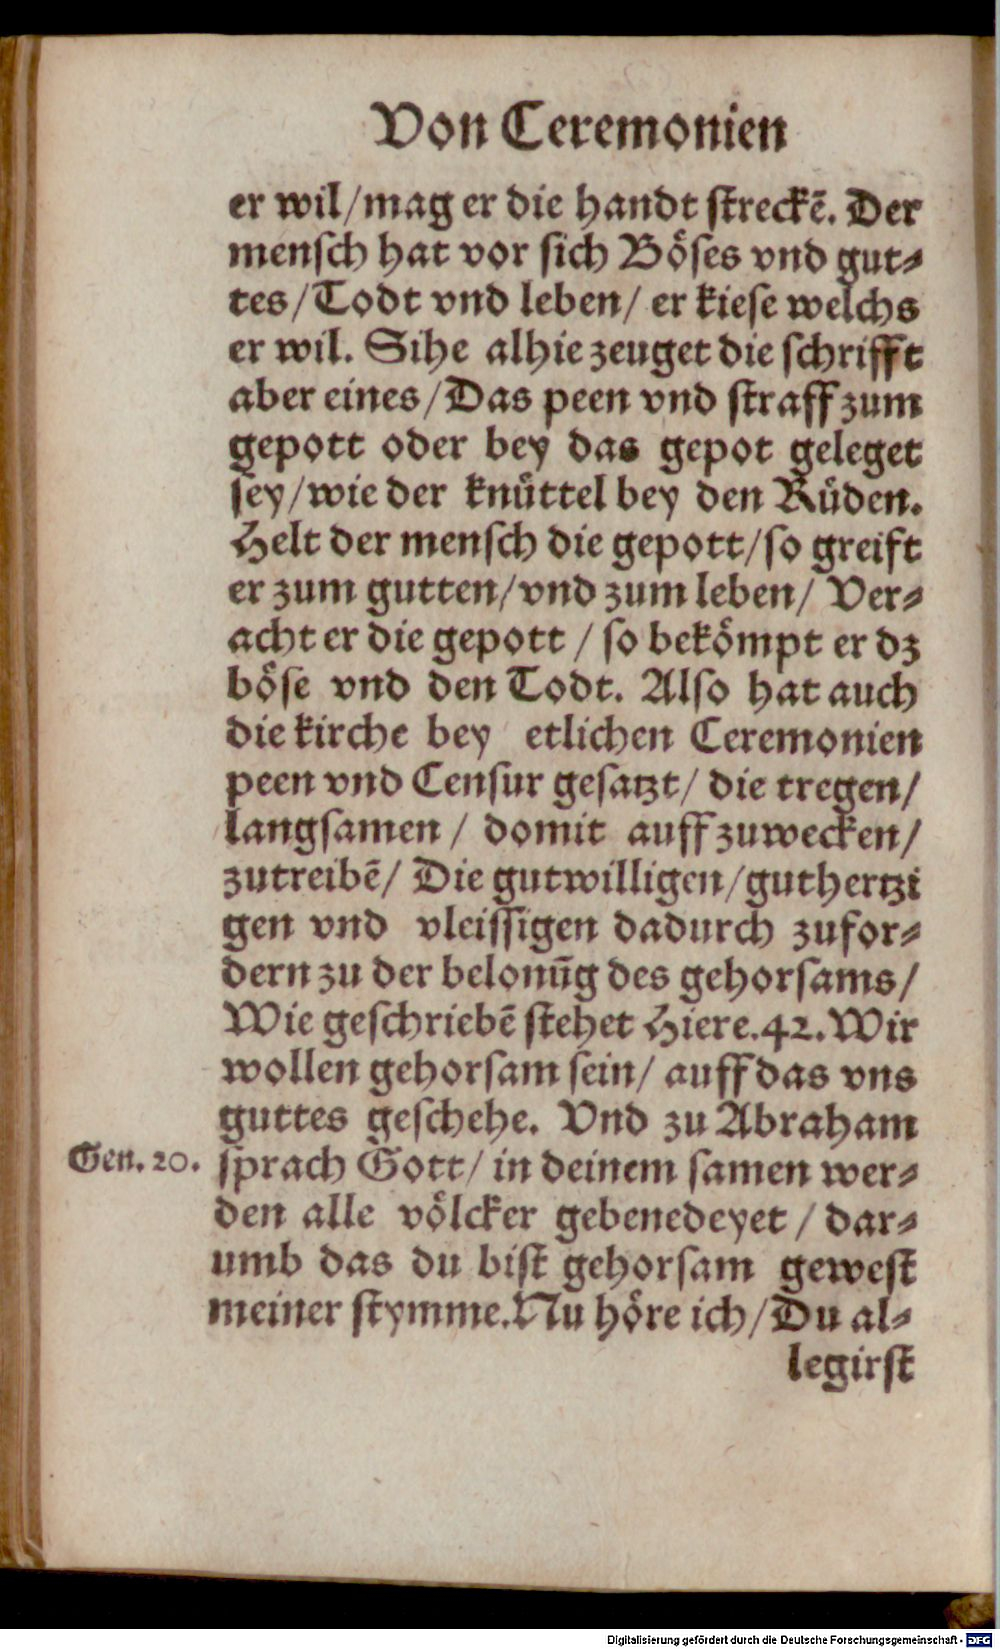 Von Ceremonien
er wil/mag er die handt streckē. Der
mensch hat vor sich Böses vnd gut⸗
tes/Todt vnd leben/ er kiese welchs
er wil. Sihe alhie zeuget die schrifft
aber eines/Das peen vnd straff zum
gepott oder bey das gepot geleget
sey/wie der knüttel bey den Rüden.
Helt der mensch die gepott/so greift
er zum gutten/vnd zum leben/ Ver⸗
acht er die gepott / so bekömpt er dz
böse vnd den Todt. Also hat auch
die kirche bey etlichen Ceremonien
peen vnd Censur gesatzt/ die tregen/
langsamen / domit auff zuwecken/
zutreibē/ Die gutwilligen/guthertzi
gen vnd vleissigen dadurch zufor⸗
dern zu der belonūg des gehorsams/
Wie geschriebē stehet Hiere.42. Wir
wollen gehorsam sein/ auff das vns
guttes geschehe. Vnd zu Abraham
Gen. 20. sprach Gott/ in deinem samen wer⸗
den alle völcker gebenedeyet / dar⸗
umb das du bist gehorsam gewest
meiner stymme. Nu höre ich/Du al⸗
legirst
Digitalisierung gefördert durch die Deutsche Forschungsgemeinschaft - DFG